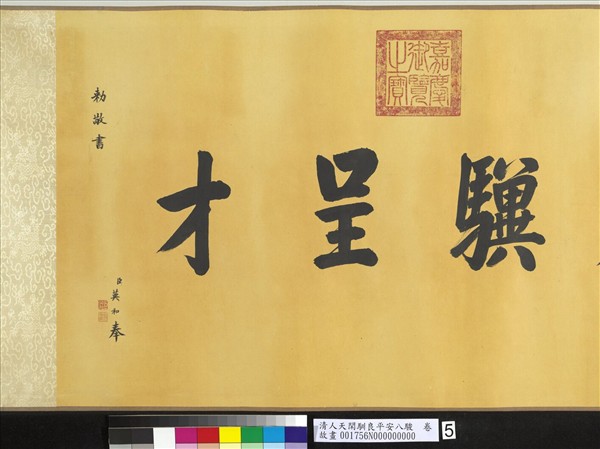 嘉慶御覽之寶
驥呈才
臣英和奉
勅敬書
清人天閑馴良平安八駿 卷
故畫 001756N000000000
5